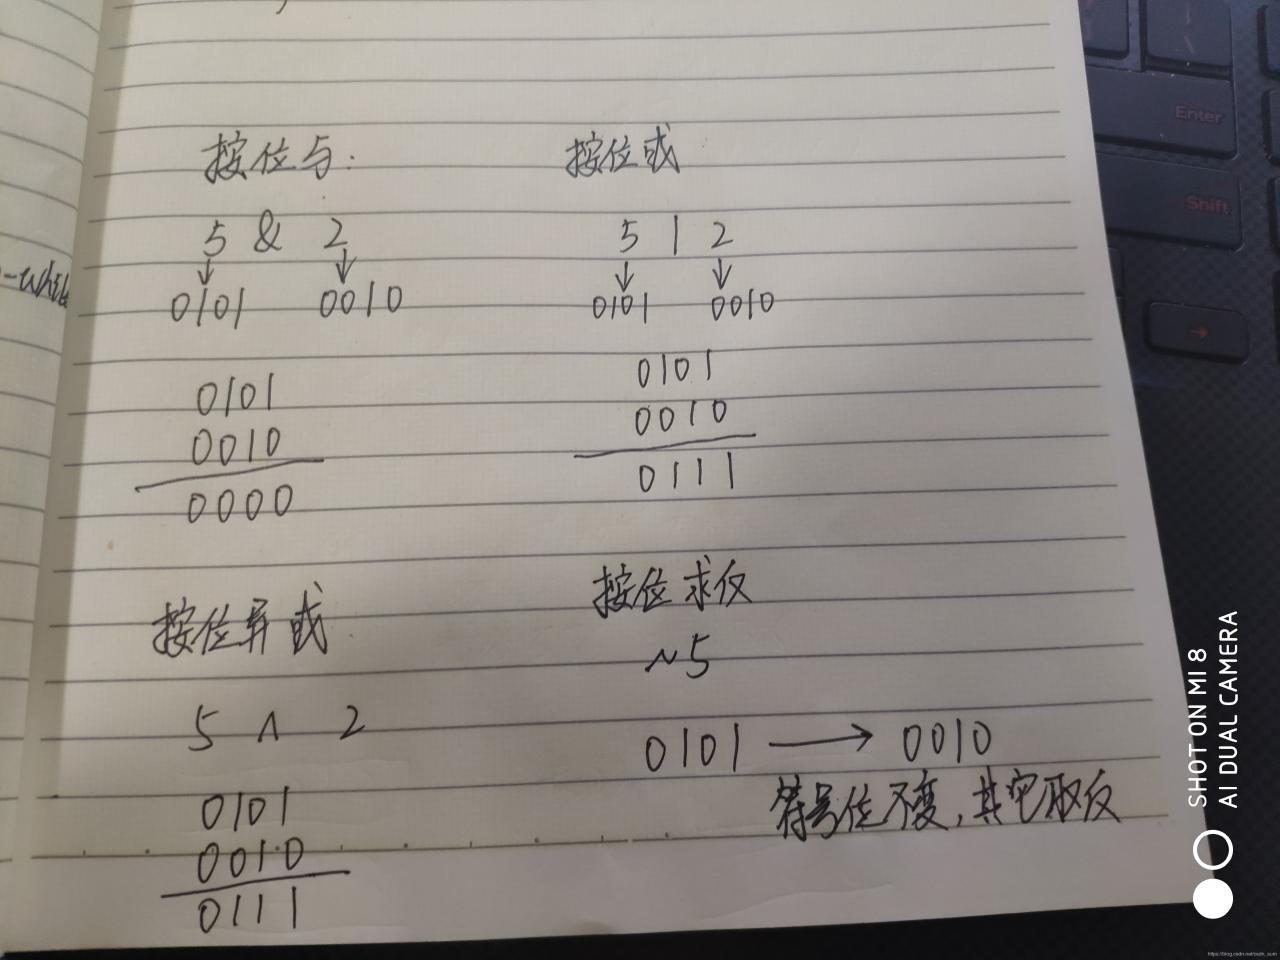 按位与:
5 & 2
0101 0010
0101
0010
0000
按位或
5 | 2
0101 0010
0101
0010
0111
按位异或
5 ∧ 2
0101
0010
0111
按位求反
~5
0101 → 0010
符号位不变,其它取反
Enter
Shift
SHOT ON MI 8
AI DUAL CAMERA